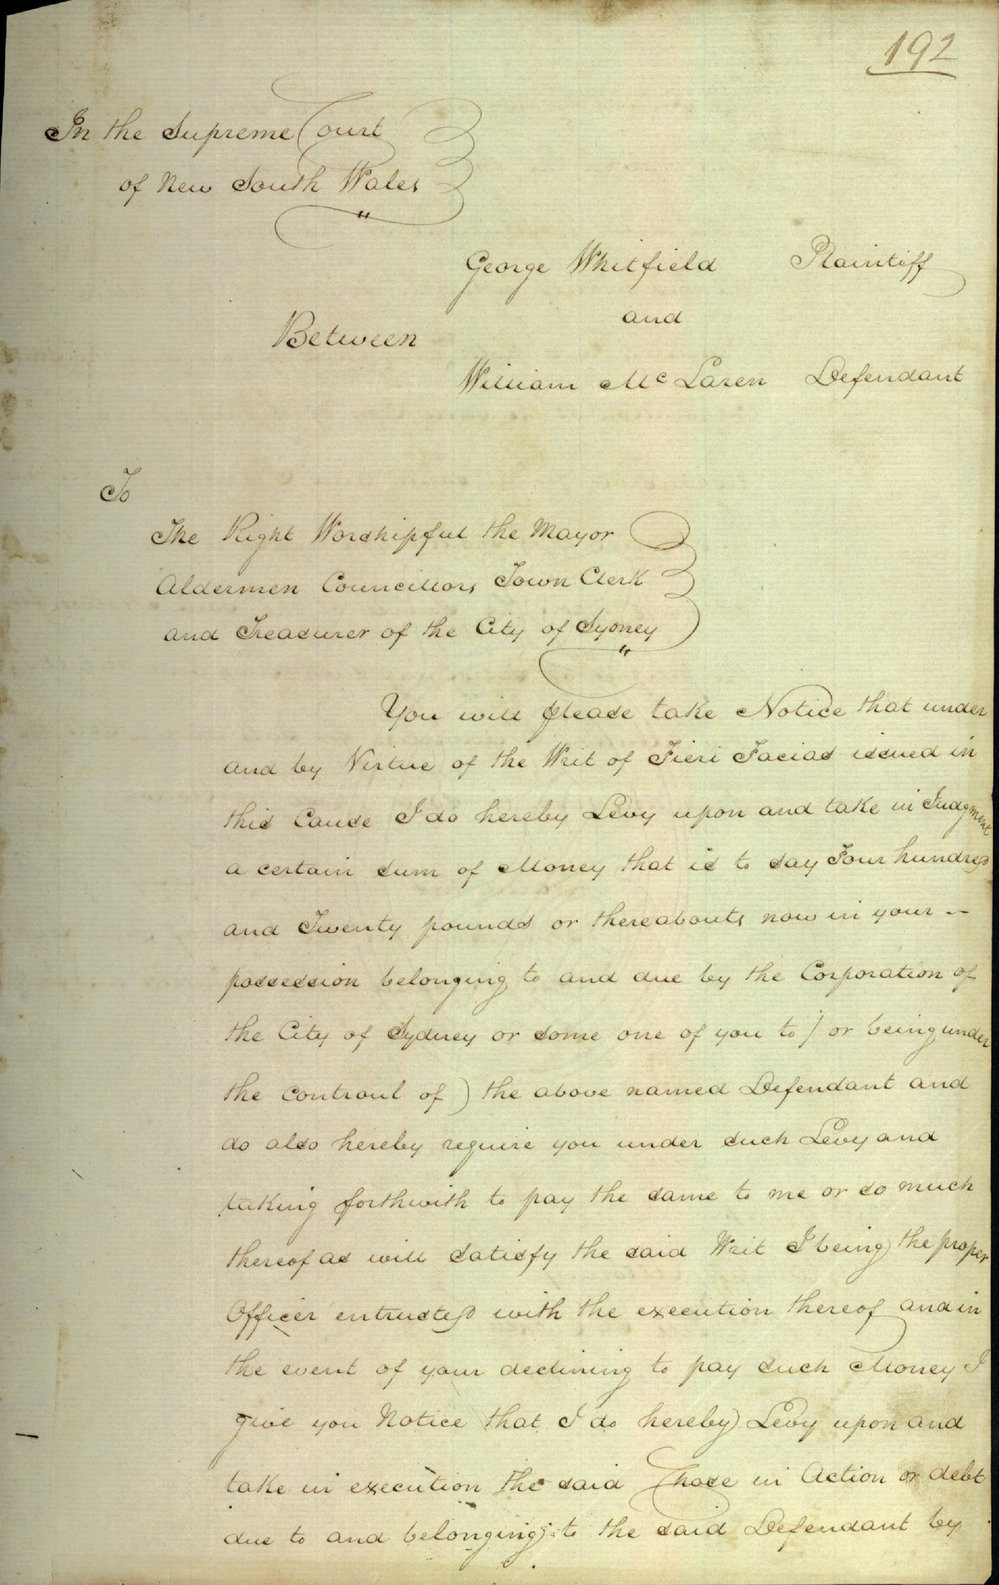 192
In the Supreme Court
of New South Wales
George Whitfield Plaintiff
Between
and
William Mc Laren Defendant
To
The Right Worshipful the Mayor
Aldermen Councillors Town Clerk
and Treasurer of the City of Sydney
You will please take Notice that under
and by Virtue of the Writ of Fieri Facias issued in
this Cause I do hereby Levy upon and take in Judgment
a certain sum of Money that is to say Four hundred
and Twenty pounds or thereabouts now in your --
possession belonging to and due by the Corporation of
the City of Sydney or some one of you to ( or being under
the controul of ) the above named Defendant and
do also hereby require you under such Levy and
taking forthwith to pay the same to me or so much
thereof as will satisfy the said Writ I being the proper
Officer entrusted with the execution thereof and in
the event of your declining to pay such Money I
give you Notice that I do hereby Levy upon and
take in execution the said Chose in Action or debt
due to and belonging to the said Defendant by